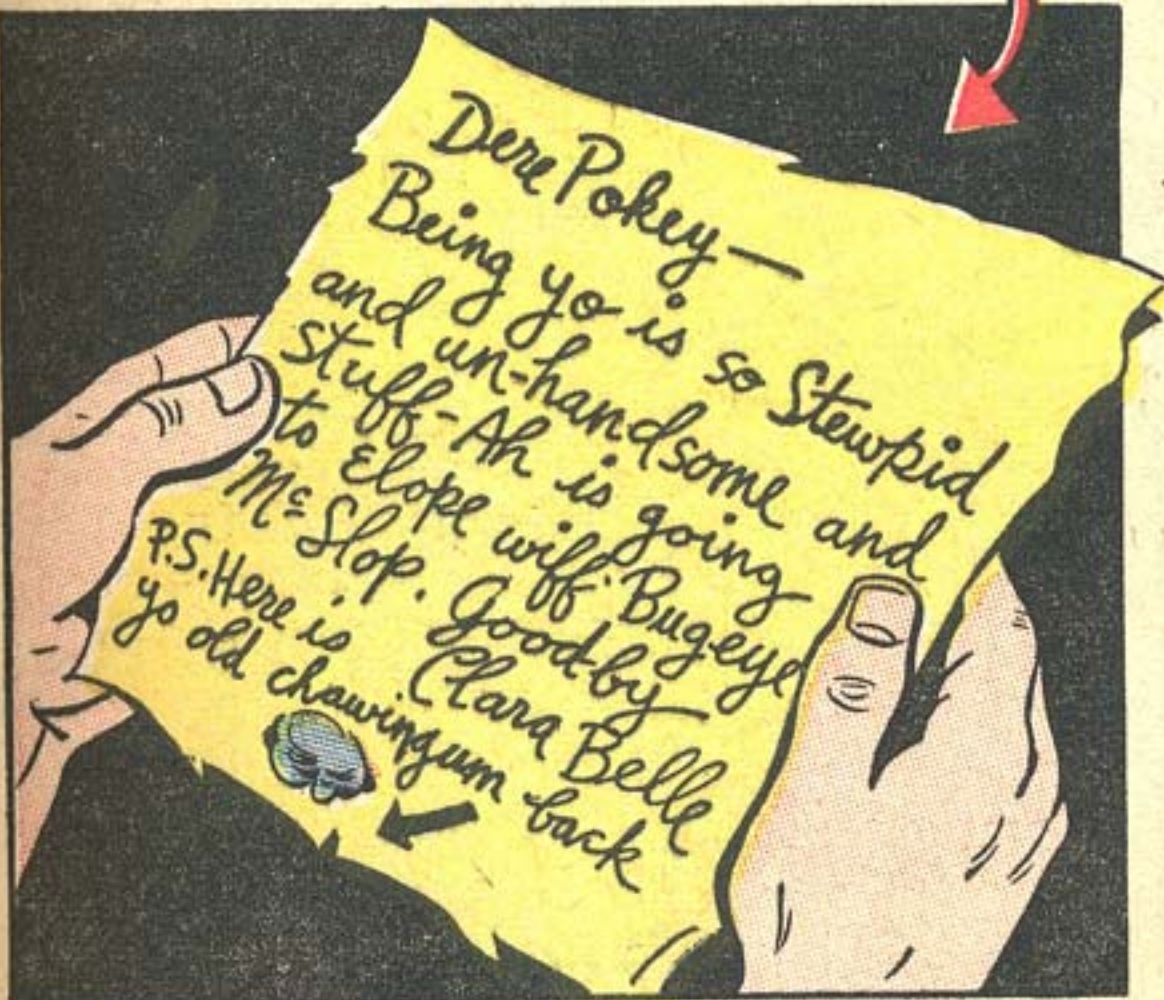 Dere Pokey—
Being yo is so Stewpid
and un-handsome and
stuff-Ah is going
to Elope wiff Bugeye
Mc Slop. Goodby
Clara Belle
P.S. Here is
yo old chawingum back